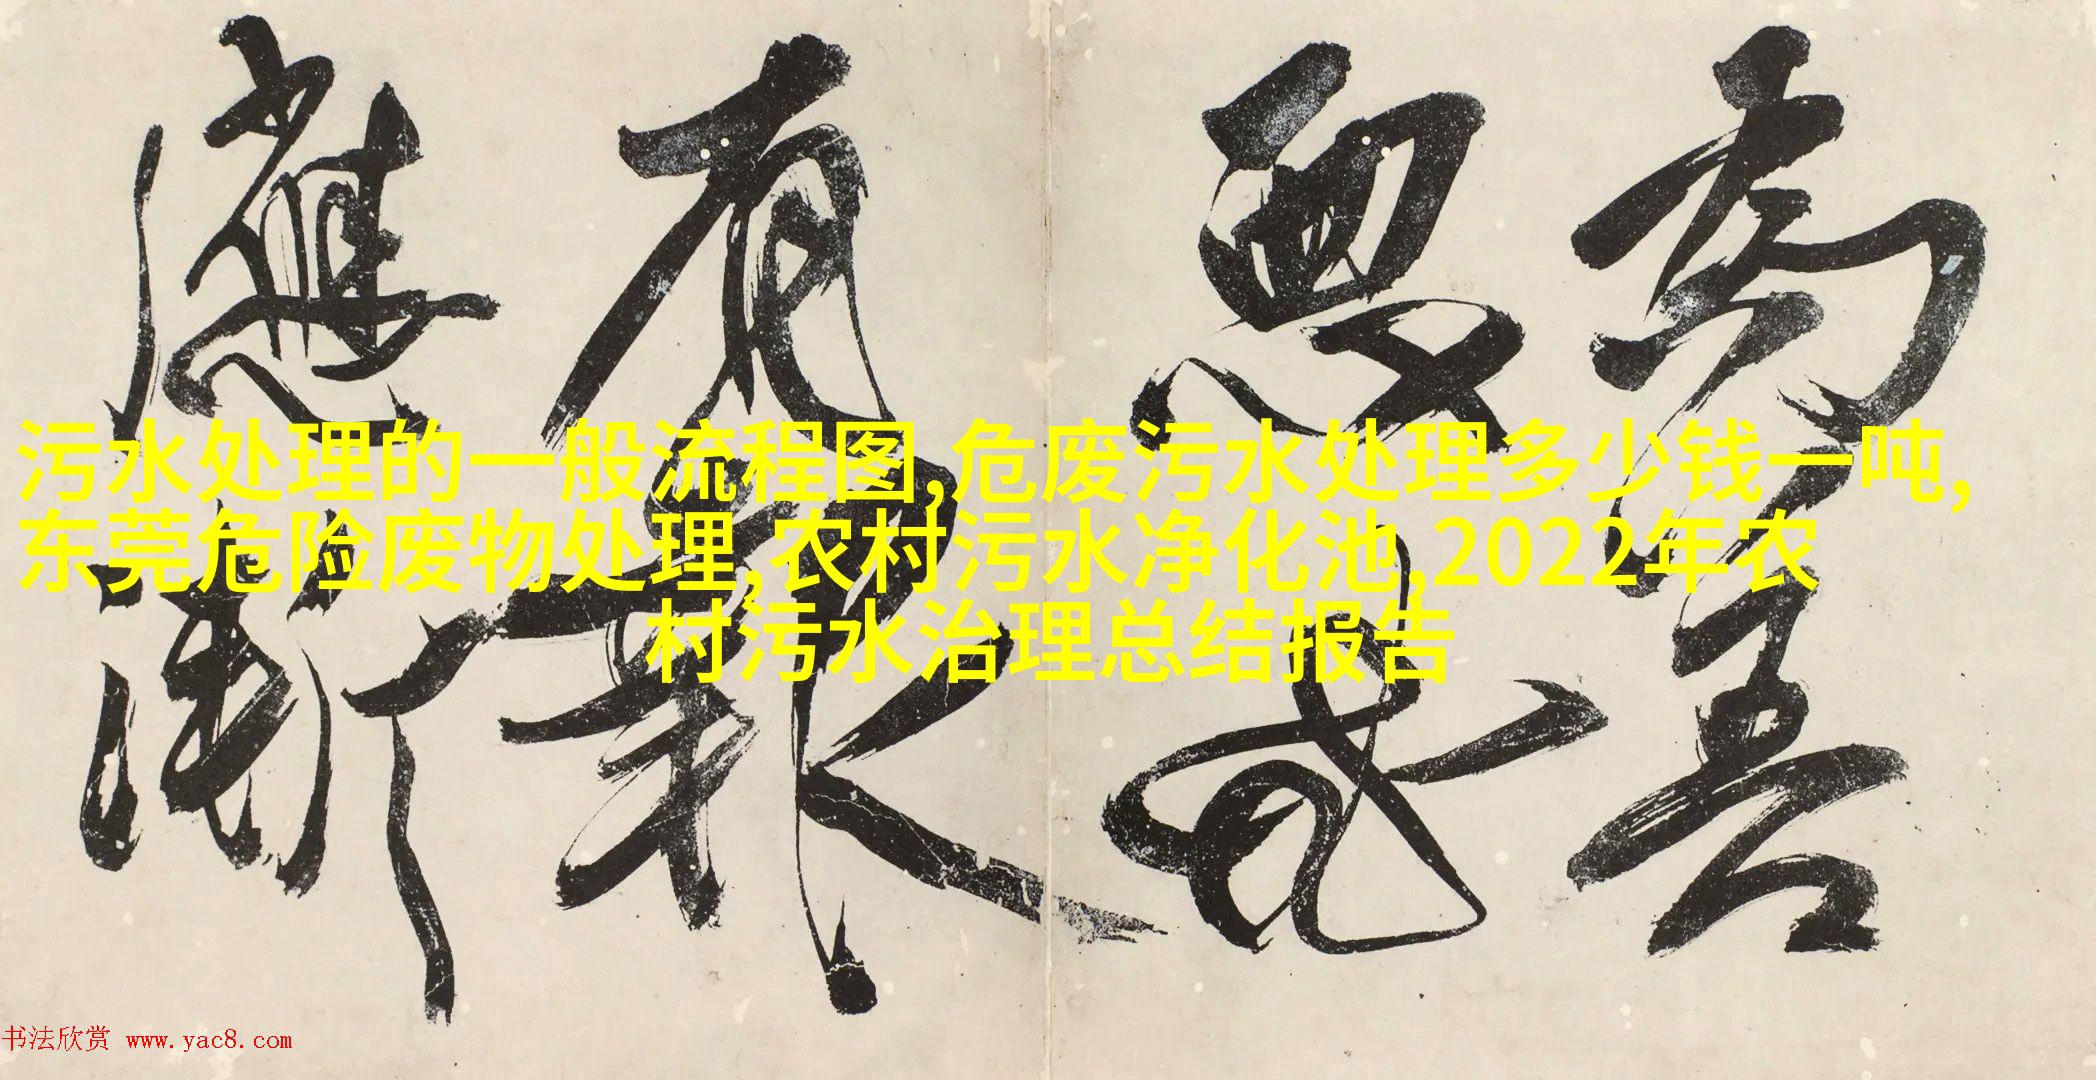 為善
惡
有報
應漸
污水处理的一般流程图,危废污水处理多少钱一吨,
东莞危险废物处理,农村污水净化池,2022年农
村污水治理总结报告
书法欣赏 www.yac8.com